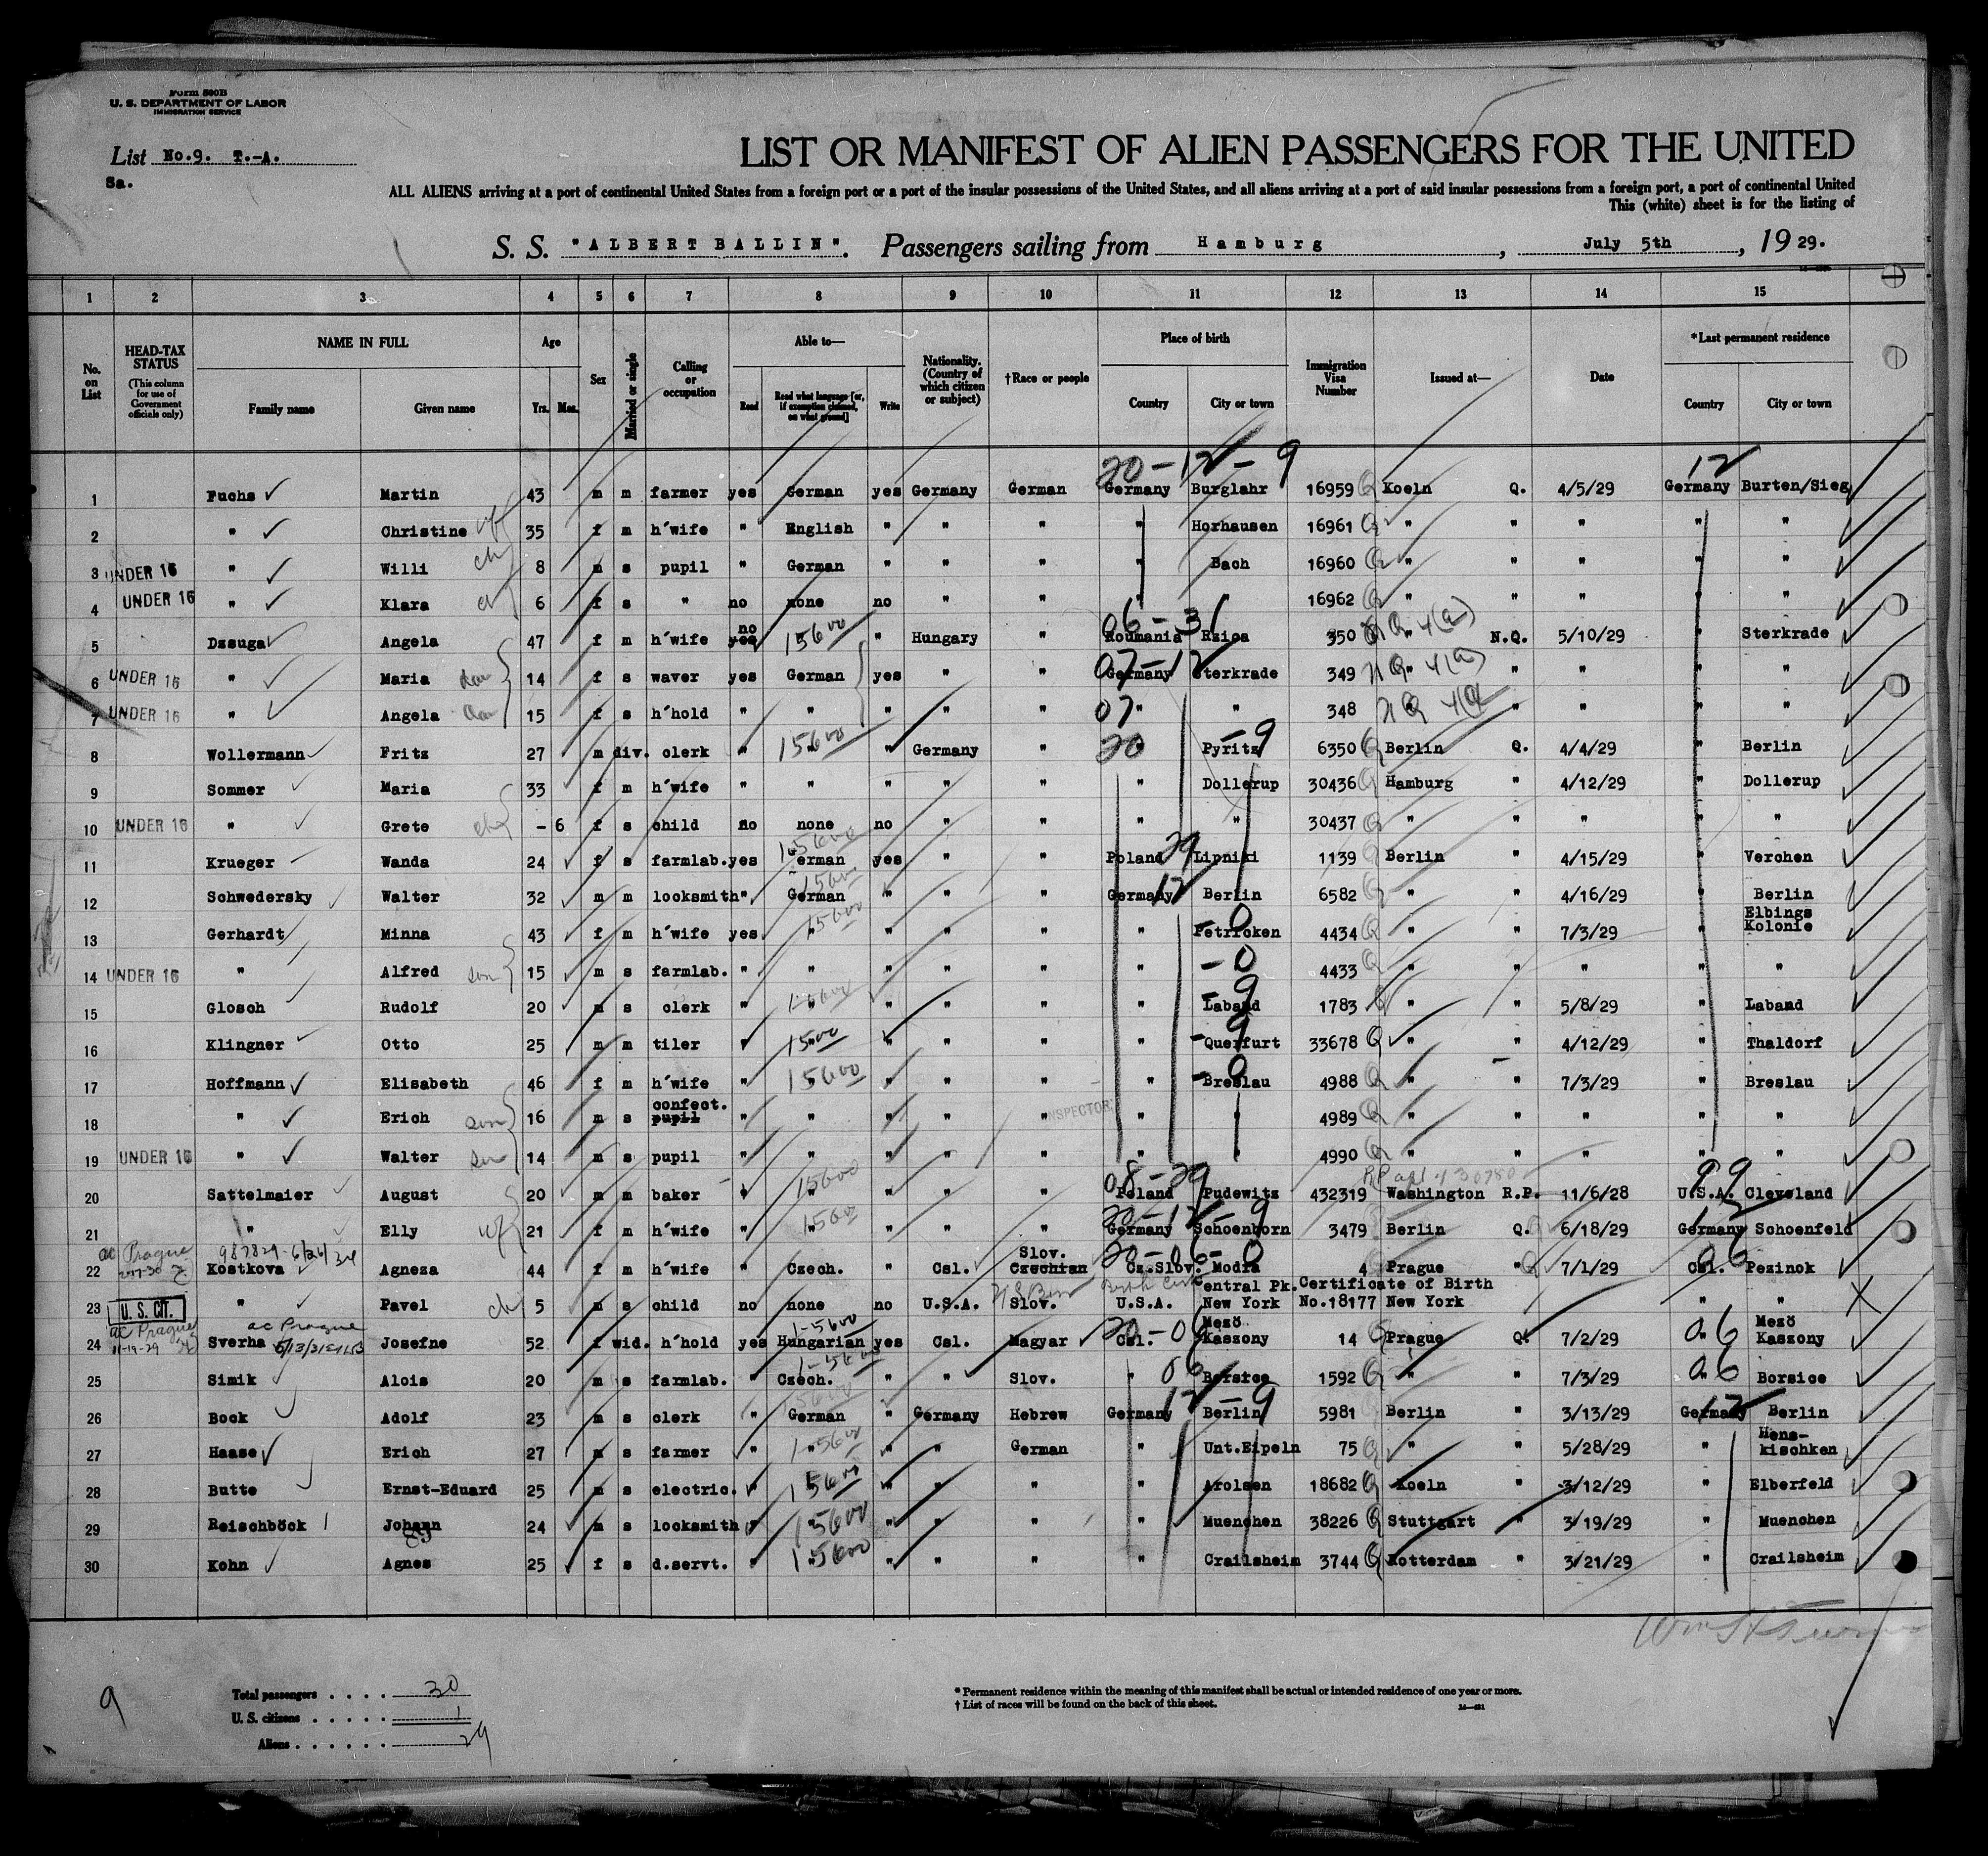 Form 500B
U. S. DEPARTMENT OF LABOR
IMMIGRATION SERVICE
List No.9. T.-A.
Sa.
LIST OR MANIFEST OF ALIEN PASSENGERS FOR THE UNITED
ALL ALIENS arriving at a port of continental United States from a foreign port or a port of the insular possessions of the United States, and all aliens arriving at a port of said insular possessions from a foreign port, a port of continental United
This (white) sheet is for the listing of
S. S. "ALBERT BALLIN". Passengers sailing from Hamburg, July 5th, 1929.
1 2 3 4 5 6 7 8 9 10 11 12 13 14 15
No. on List
HEAD-TAX STATUS (This column for use of Government officials only)
NAME IN FULL Family name Given name
Age Yrs. Mos.
Sex
Married or single
Calling or occupation
Able to— Read Read what language [or, if exemption claimed, on what ground] Write
Nationality. (Country of which citizen or subject)
†Race or people
Place of birth Country City or town
Immigration Visa Number
Issued at—
Date
*Last permanent residence Country City or town
20-12-9 12
1 Fuchs Martin 43 m m farmer yes German yes Germany German Germany Burglahr 16959 Q Koeln Q. 4/5/29 Germany Burten/Sieg
2 " Christine wf 35 f m h'wife " English " " " " Horhausen 16961 Q " " " " "
3 UNDER 16 " Willi ch 8 m s pupil " German " " " " Bach 16960 Q " " " " "
4 UNDER 16 " Klara ch 6 f s " no none no " " " " 16962 Q " " " " "
06-31
5 Dzsuga Angela 47 f m h'wife no yes 15600 " Hungary " Roumania Rzica 350 NQ 4(a) " N.Q. 5/10/29 " Sterkrade
07-12
6 UNDER 16 " Maria dau 14 f s waver yes German yes " " Germany Sterkrade 349 NQ 4(a) " " " " "
7 UNDER 16 " Angela dau 15 f s h'hold " " " " " 07 " " 348 NQ 4(a) " " " "
8 Wollermann Fritz 27 m div. clerk " 15600 " Germany " 20 Pyritz -9 6350 Q Berlin Q. 4/4/29 " Berlin
9 Sommer Maria 33 f m h'wife " " " " " " Dollerup 30436 Q Hamburg " 4/12/29 " Dollerup
10 UNDER 16 " Grete ch - 6 f s child no none no " " " " 30437 Q " " " " "
11 Krueger Wanda 24 f s farmlab. yes 15600 erman yes " " Poland 29 Lipniki 1139 Q Berlin " 4/15/29 " Verchen
12 Schwedersky Walter 32 m m locksmith " 15600 German " " " Germany 12 Berlin 6582 Q " " 4/16/29 " Berlin
13 Gerhardt Minna 43 f m h'wife yes. 15600 " " " " " Petricken -0 4434 Q " " 7/3/29 " Elbings Kolonie
14 UNDER 16 " Alfred son 15 m s farmlab. " " " " " " -0 4433 Q " " " " "
15 Glosch Rudolf 20 m s clerk " 15600 " " " " Laband -9 1783 Q " " 5/8/29 " Laband
16 Klingner Otto 25 m m tiler " 1500 " " " " Querfurt -9 33678 Q " " 4/12/29 " Thaldorf
17 Hoffmann Elisabeth 46 f m h'wife " 15600 " " " " Breslau -0 4988 Q " " 7/3/29 " Breslau
18 " Erich son 16 m s confect. pupil " " " " " INSPECTOR " " 4989 Q " " " " "
19 UNDER 16 " Walter son 14 m s pupil " " " " " " " 4990 Q " " " " "
08-29 99
20 Sattelmaier August 20 m m baker " 15600 " " " Poland Pudewitz 432319 Washington R.P. 11/6/28 U.S.A. Cleveland
20-12-9 12
21 " Elly wf 21 f m h'wife " 1560 " " " Germany Schoenborn 3479 Berlin Q. 6/18/29 Germany Schoenfeld
ac Prague 987829-6/26/34
20-06-0 06
22 Kostkova Agneza 44 f m h'wife " Czech. " Csl. Slov. Czechian Cz.Slov. Modra 4 Prague Q 7/1/29 Csl. Pezinok
23 U.S. CIT. " Pavel ch 5 m s child no none no U.S.A. Slov. Birth Cert U.S.A. Central Pk. New York Certificate of Birth No.18177 New York " "
ac Prague 11-19-29 ac Prague
24 Sverha Josefne 52 f wid. h'hold yes 1-5600 Hungarian yes Csl. Magyar 20-06 Csl. Mezö Kaszony 14 Q Prague Q. 7/2/29 06 " Mezö Kaszony
25 Simik Alois 20 m s farmlab. " Czech. " " Slov. " 06 Borsice 1592 Q " " 7/3/29 06 " Borsice
12-9 12
26 Bock Adolf 23 m s clerk " 15600 German " Germany Hebrew Germany Berlin 5981 Berlin " 3/13/29 Germany Berlin
27 Haase Erich 27 m s farmer " 1-5600 " " German " Unt.Eipeln 75 Q " " 5/28/29 " Hens-kischken
28 Butte Ernst-Eduard 25 m s electric. " 15600 " " " " Arolsen 18682 Q Koeln " 3/12/29 " Elberfeld
29 Reischböck Johann 24 m s locksmith " 15600 " " " " Muenchen 38226 Q Stuttgart " 3/19/29 " Muenchen
30 Kohn Agnes 25 f s d.servt. " 15600 " " " " Crailsheim 3744 Q Rotterdam " 3/21/29 " Crailsheim
9
Total passengers . . . . 30
U. S. citizens . . . . . 1
Aliens . . . . . . 29
* Permanent residence within the meaning of this manifest shall be actual or intended residence of one year or more.
† List of races will be found on the back of this sheet.